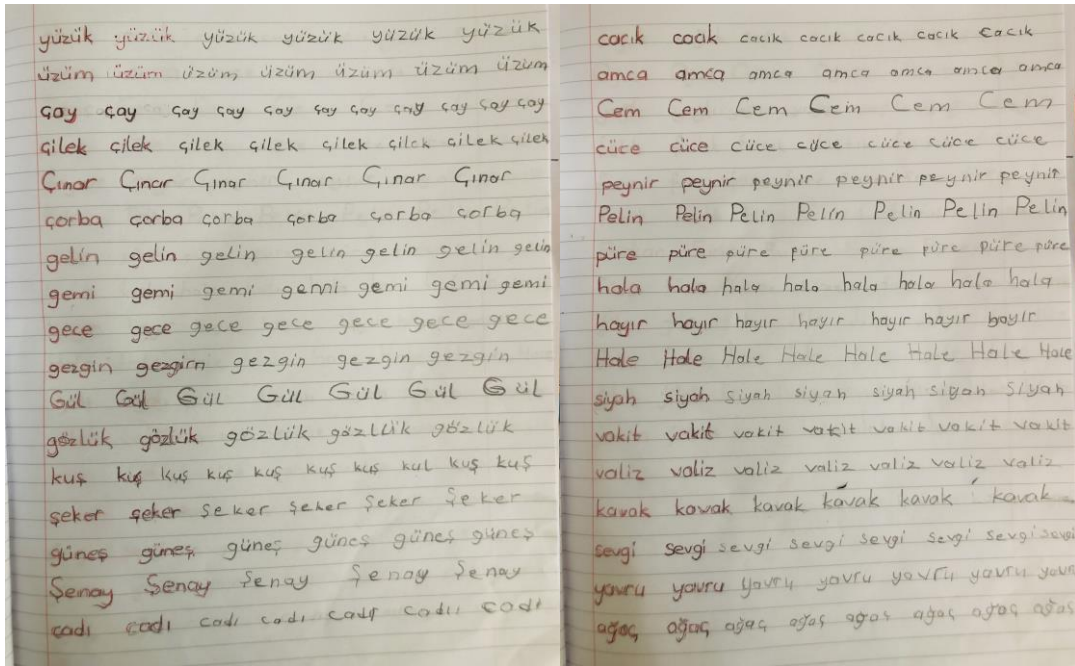 yüzük yüzük yüzük yüzük yüzük yüzük
üzüm üzüm üzüm üzüm üzüm üzüm üzüm
çay çay çay çay çay çay çay çay çay çay
çilek çilek çilek çilek çilek çilek çilek çilek
Çınar Çınar Çınar Çınar Çınar Çınar
çorba çorba çorba çorba çorba çorba
gelin gelin gelin gelin gelin gelin gelin
gemi gemi gemi gemi gemi gemi gemi
gece gece gece gece gece gece gece
gezgin gezgirn gezgin gezgin gezgin
Gül Gül Gül Gül Gül Gül Gül
gözlük gözlük gözlük gözlük gözlük
kuş kuş kuş kuş kuş kuş kul kuş kuş
şeker şeker şeker şeker şeker şeker
güneş güneş güneş güneş güneş güneş
Şenay Şenay Şenay Şenay Şenay
cadı cadı cadı cadı cadı cadı cadı
cacık cacık cacık cacık cacık cacık cacık
amca amca amca amca amca amca amca
Cem Cem Cem Cem Cem Cem
cüce cüce cüce cüce cüce cüce cüce
peynir peynir peynir peynir peynir peynir
Pelin Pelin Pelin Pelin Pelin Pelin Pelin
püre püre püre püre püre püre püre püre
hala hala hala hala hala hala hala hala
hayır hayır hayır hayır hayır hayır bayır
Hale Hale Hale Hale Hale Hale Hale Hale
siyah siyah siyah siyah siyah siyah siyah
vakit vakit vakit vakit vakit vakit vakit
valiz valiz valiz valiz valiz valiz valiz
kavak kavak kavak kavak kavak kavak
sevgi sevgi sevgi sevgi sevgi sevgi sevgi sevgi
yavru yavru yavru yavru yavru yavru yavru
ağaç ağaç ağaç ağaç ağaç ağaç ağaç ağaç